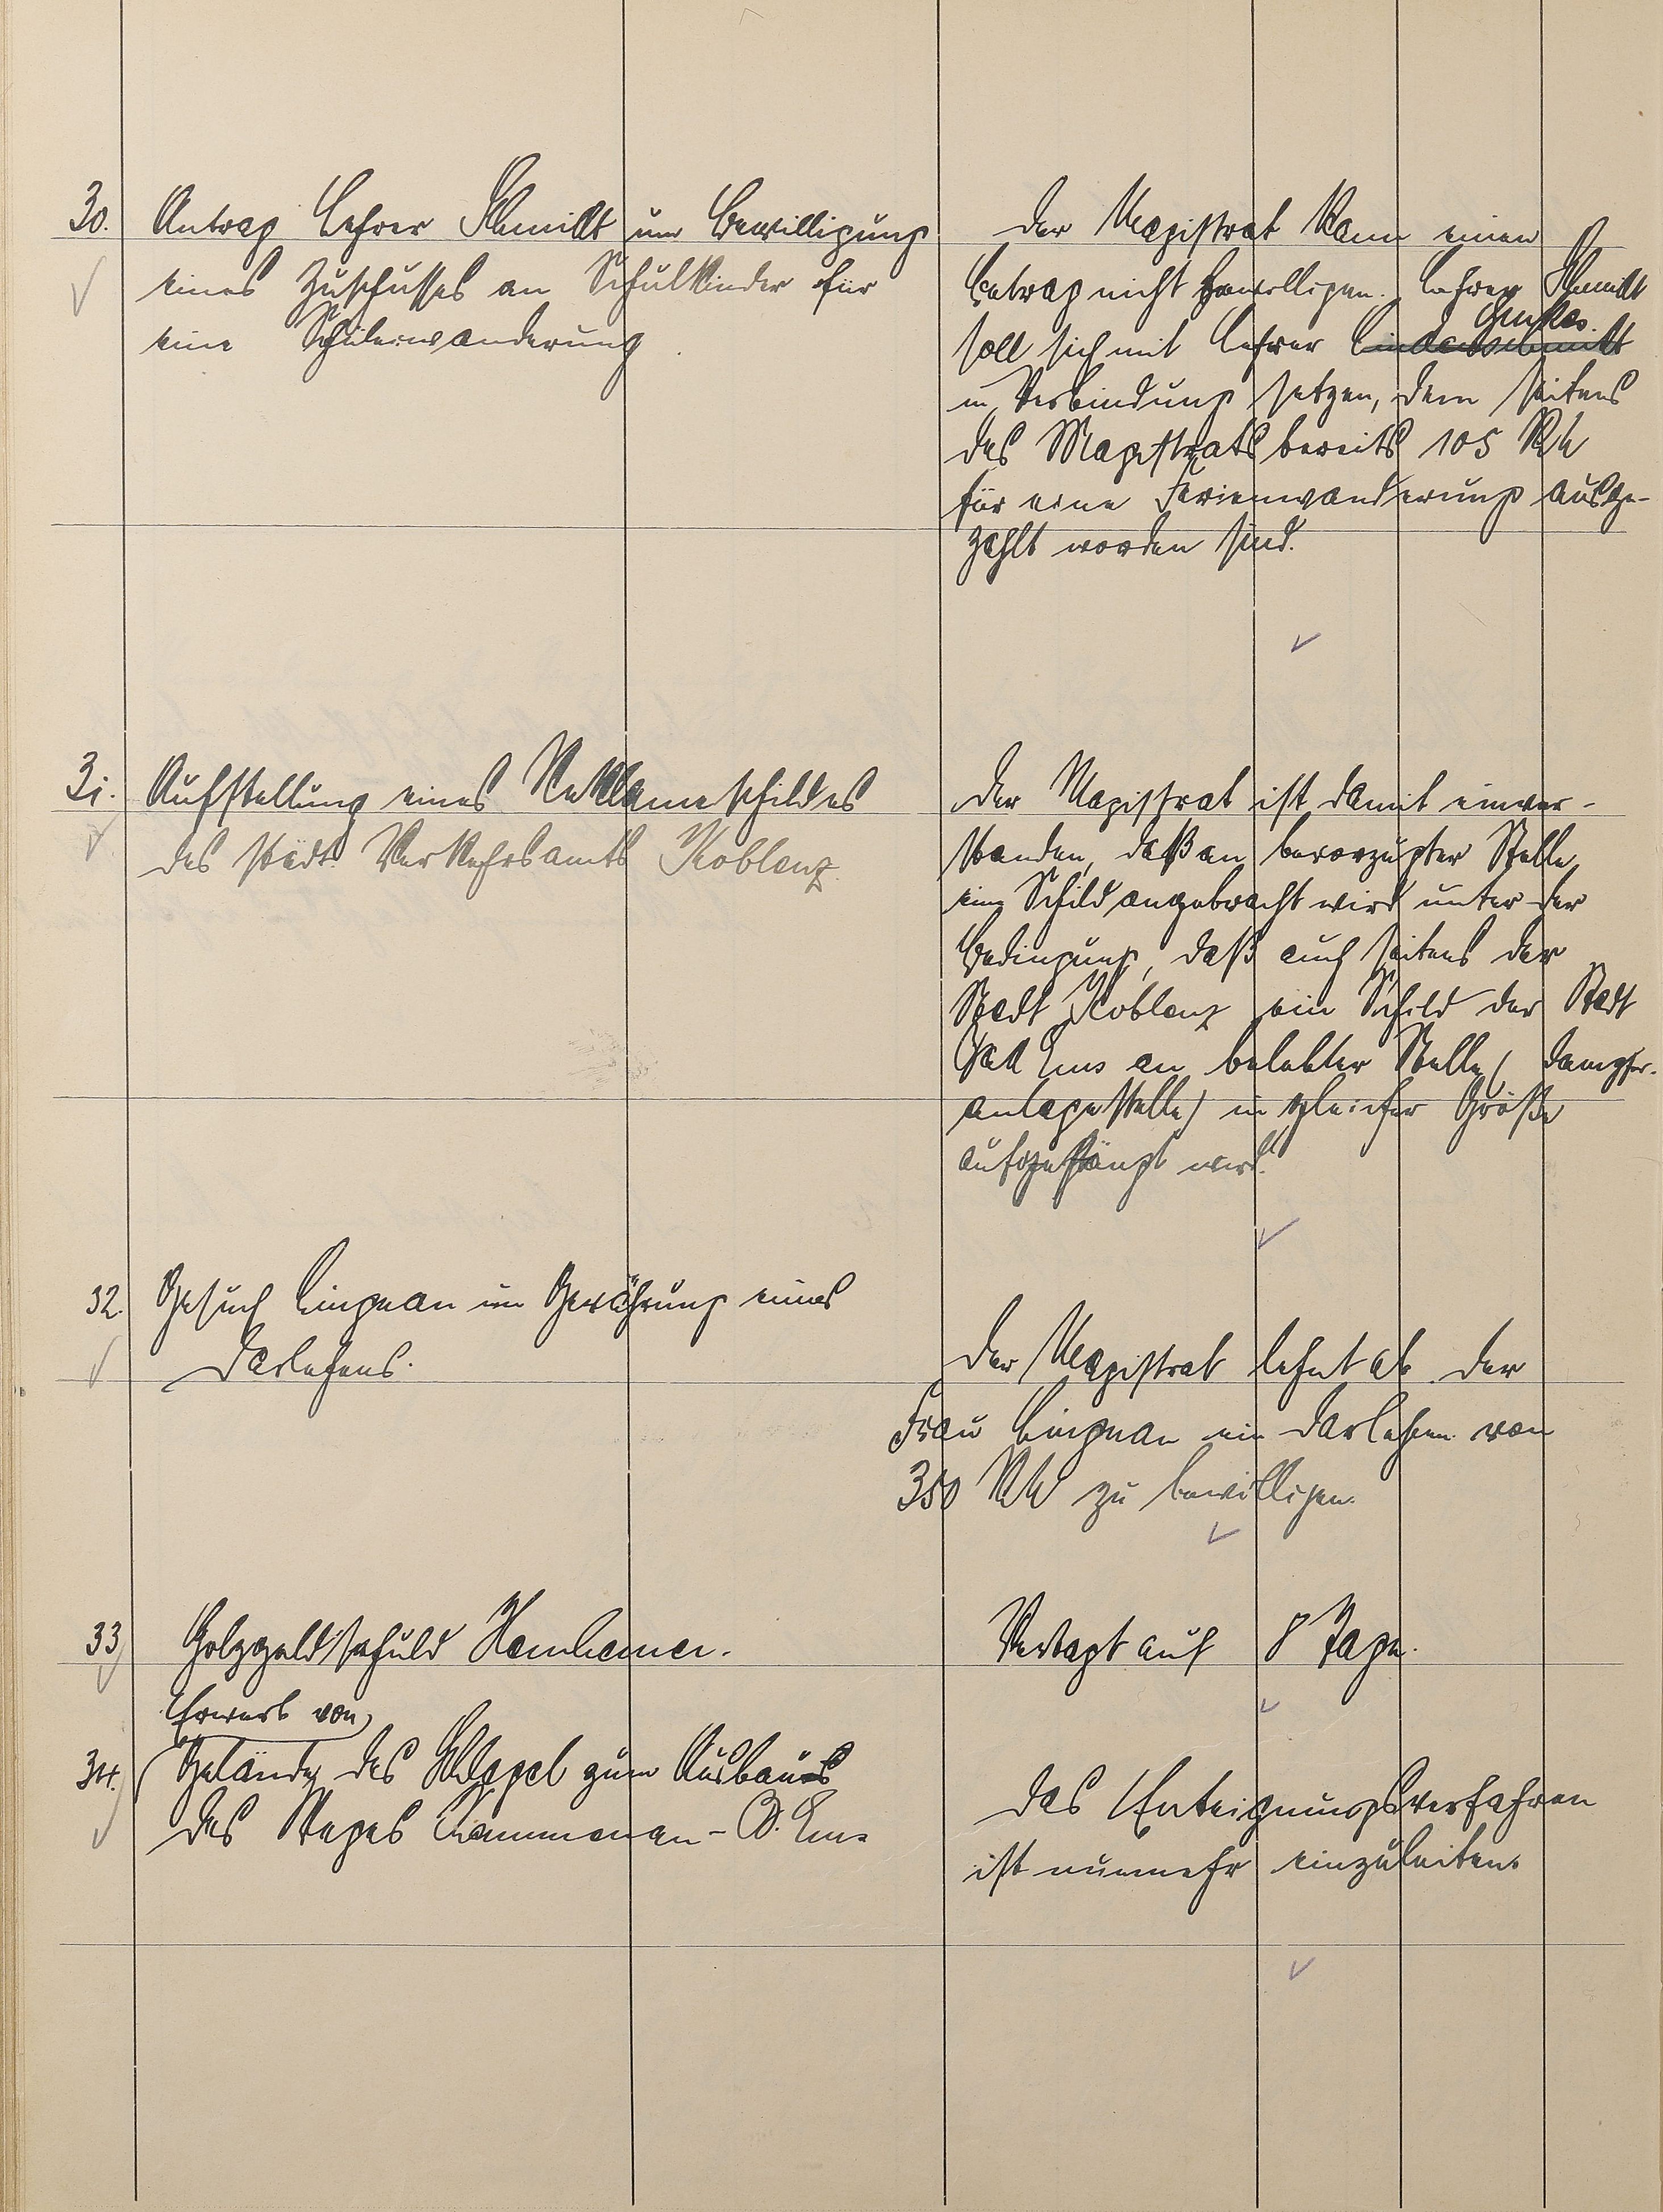 30. Antrag Lehrer Schmidt um Bewilligung
eines Zuschusses an Schulkinder für
eine Schülerwanderung.
Der Magistrat kann einen
Betrag nicht bewilligen. Lehrer Schmidt
soll sich mit Lehrer
in Verbindung setzen, dem seitens
des Magistrats bereits 105 RM
für eine Ferienwanderung ausge-
zahlt worden sind.
31. Aufstellung eines Reklameschildes
des städt. Verkehrsamts Koblenz.
Der Magistrat ist damit einver-
standen, daß an bevorzugter Stelle
ein Schild angebracht wird unter der
Bedingung, daß auch seitens der
Stadt Koblenz ein Schild der Stadt
Bad Ems an belebter Stelle (Dampfer-
anlegestelle) in gleicher Größe
aufgehängt wird.
32. Gesuch um Gewährung eines
Darlehens.
Der Magistrat lehnt ab der
Frau ein Darlehen von
350 RM zu bewilligen.
33 Holzgeldschuld
Vertagt auf 8 Tage.
Erwerb von
34. Gelände des zum Ausbau
des Weges Kemmenau - B. Ems
Das Enteignungsverfahren
ist nunmehr einzuleiten.